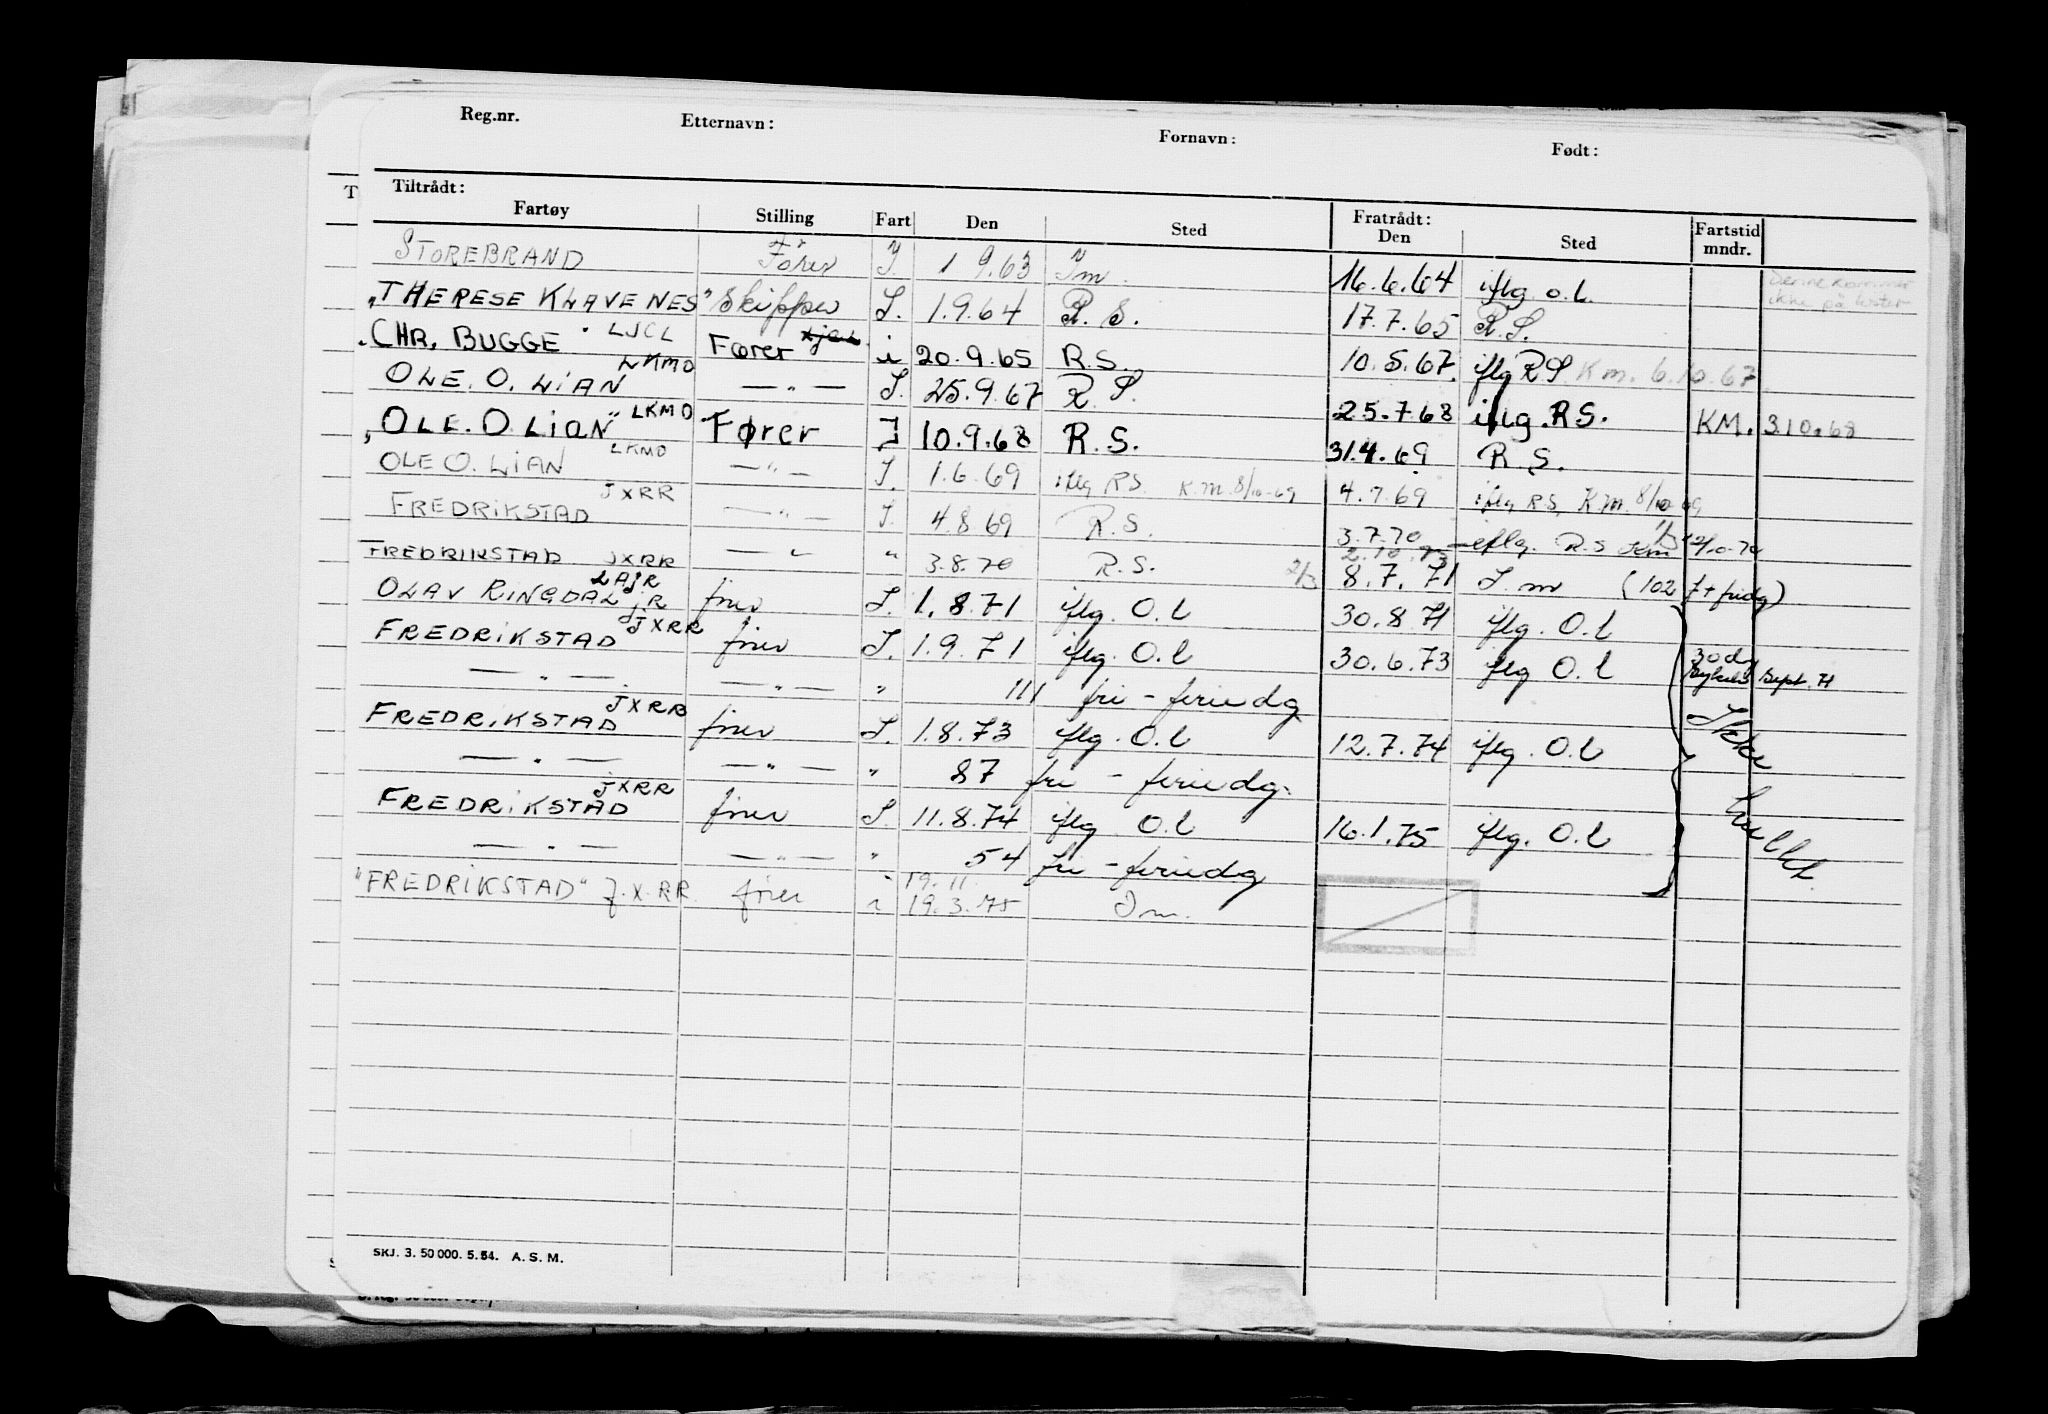 Reg.nr. Etternavn: Fornavn: Født:
Tiltrådt: Fratrådt:
Fartøy Stilling Fart Den Sted Den Sted Fartstid mndr.
STOREBRAND Fører I. 1 9.63 Im. 16.6.64 iflg. o.l. Denne kommer ikke på lister
"THERESE KLAVENES" Skipper I. 1.9.64 R.S. 17.7.65 R.S.
CHR. BUGGE LJCL Fører i 20.9.65 R.S. 10.5.67 iflg RS Km. 6.10.67
OLE. O. LIAN LKMO — " — I. 25.9.67 R.S. 25.7.68 iflg. R.S. KM. 3.10.68
"OLE. O. LIAN" LKMO Fører I 10.9.68 R.S. 31.4.69 R.S.
OLE O. LIAN LKMO — " — I. 1.6.69 iflg RS. K.m. 8/10-69 4.7.69 iflg RS. K.m. 8/10-69
FREDRIKSTAD JXRR — " — I. 4.8 69 R.S. 3.7.70 iflg. R.S Km 12/10-70
FREDRIKSTAD JXRR — " — " 3.8.70 R.S. 2/3 8.7.71 I.m (102 f + fridg)
OLAV RINGDAL jR LAJR fører I. 1.8.71 iflg. O.l 30.8 71 iflg. O.l
FREDRIKSTAD JXRR fører I. 1.9.71 iflg. O.l 30.6.73 iflg O.l 30 dg Sykeh Sept. 71
— " — — " — " 111 fri - feriedg
FREDRIKSTAD JXRR fører I. 1.8.73 iflg. O.l 12.7.74 iflg. O.l Ikke
— " — — " — " 87 fri - feriedg.
FREDRIKSTAD JXRR fører I. 11.8.74 iflg O.l 16.1.75 iflg. O.l
— " — — " — " 54 fri - feriedg
"FREDRIKSTAD" J.X.RR. fører i 19.3.75 Im.
SKJ. 3. 50 000. 5. 64. A. S. M.